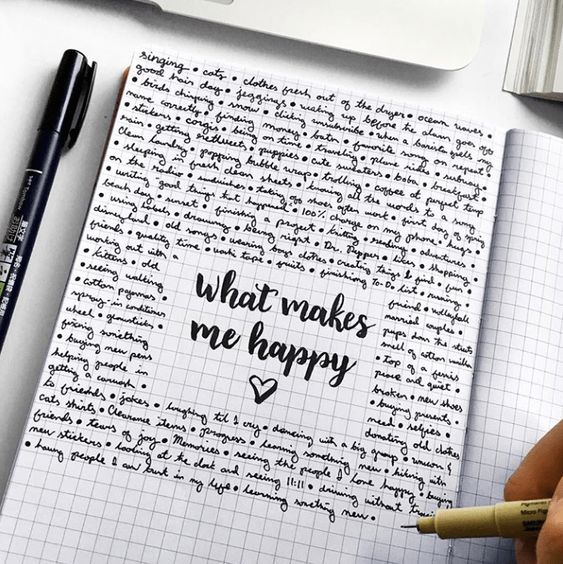 singing • cats • clothes fresh out of the dryer • ocean waves •
good hair day • jeggings • waking up before the alarm goes off
• birds chirping • snow • clicking unsubscribe • when a barista gets my
name correctly • finding money • baton • favorite song on repeat
• stickers • corgis • being on time • traveling • plane rides • subway •
rain • getting retweets • puppies • cute sweaters • boba • breakfast •
clean laundry • popping bubble wrap • trolling • coffee at perfect temp
• sleeping in fresh clean sheets • knowing all the words to a song
on the radio • sandwiches • taking off shoes after work • first day of spring
• writing good things that happened • 100% charge on my phone • hugs •
beach day • sunset • finishing a project • knitting • reading • adventures •
using labels • drawing • being right • Dr. Pepper • shopping
disneyland • old songs • wearing boys clothes • creating things • fun •
friends • quality time • washi tape • fruits • finishing to Do list • running
working out with a
• kittens • old
• seeing walking
cotton pajamas •
spray in conditioner
wheel •
fixing something
• buying new pens
helping people in
getting a carwash •
what makes
me happy
friend • volleyball
married couples •
pups down the streets
smell of cotton
• top of a ferris
peace and quiet •
broken • new shoes
• buying presents •
need • selfies •
donating old clothes
to friends • jokes • laughing til I cry • dancing with a big group • unicorn &
cats shirts • Clearance items • progress • learning something new • hiking with
friends • tears of joy • Memories • seeing the people I love happy • buying
new stickers • looking at the clock and seeing 11:11 • driving without traffic
• having people I can trust in my life • learning something new •